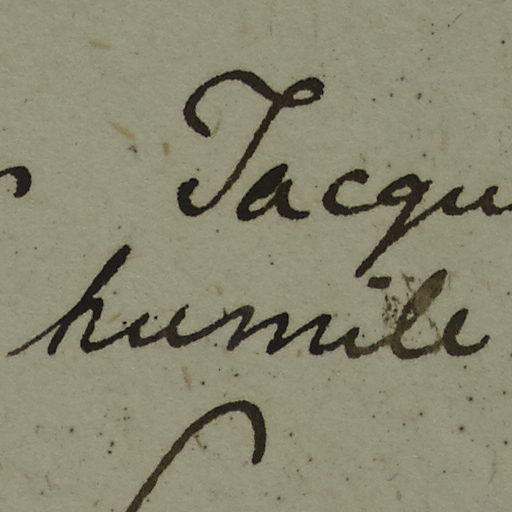 Jacqu
humile